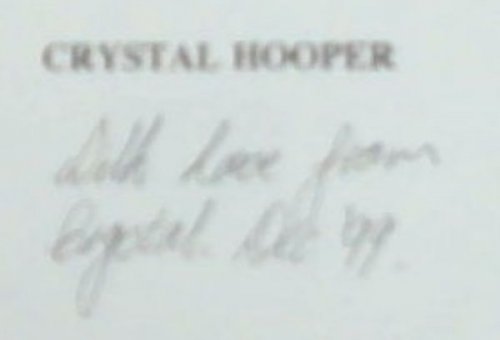 CRYSTAL HOOPER
With love from
Crystal. Dec '99.